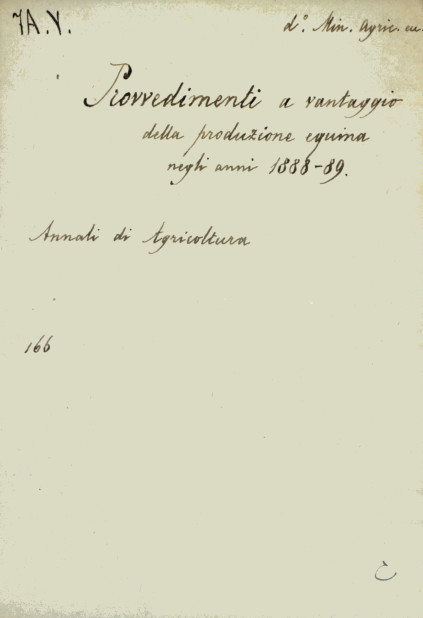 7A.V.
d°. Min. Agric. eu.
Provvedimenti a vantaggio
della produzione equina
negli anni 1888-89.
Annali di Agricoltura
166